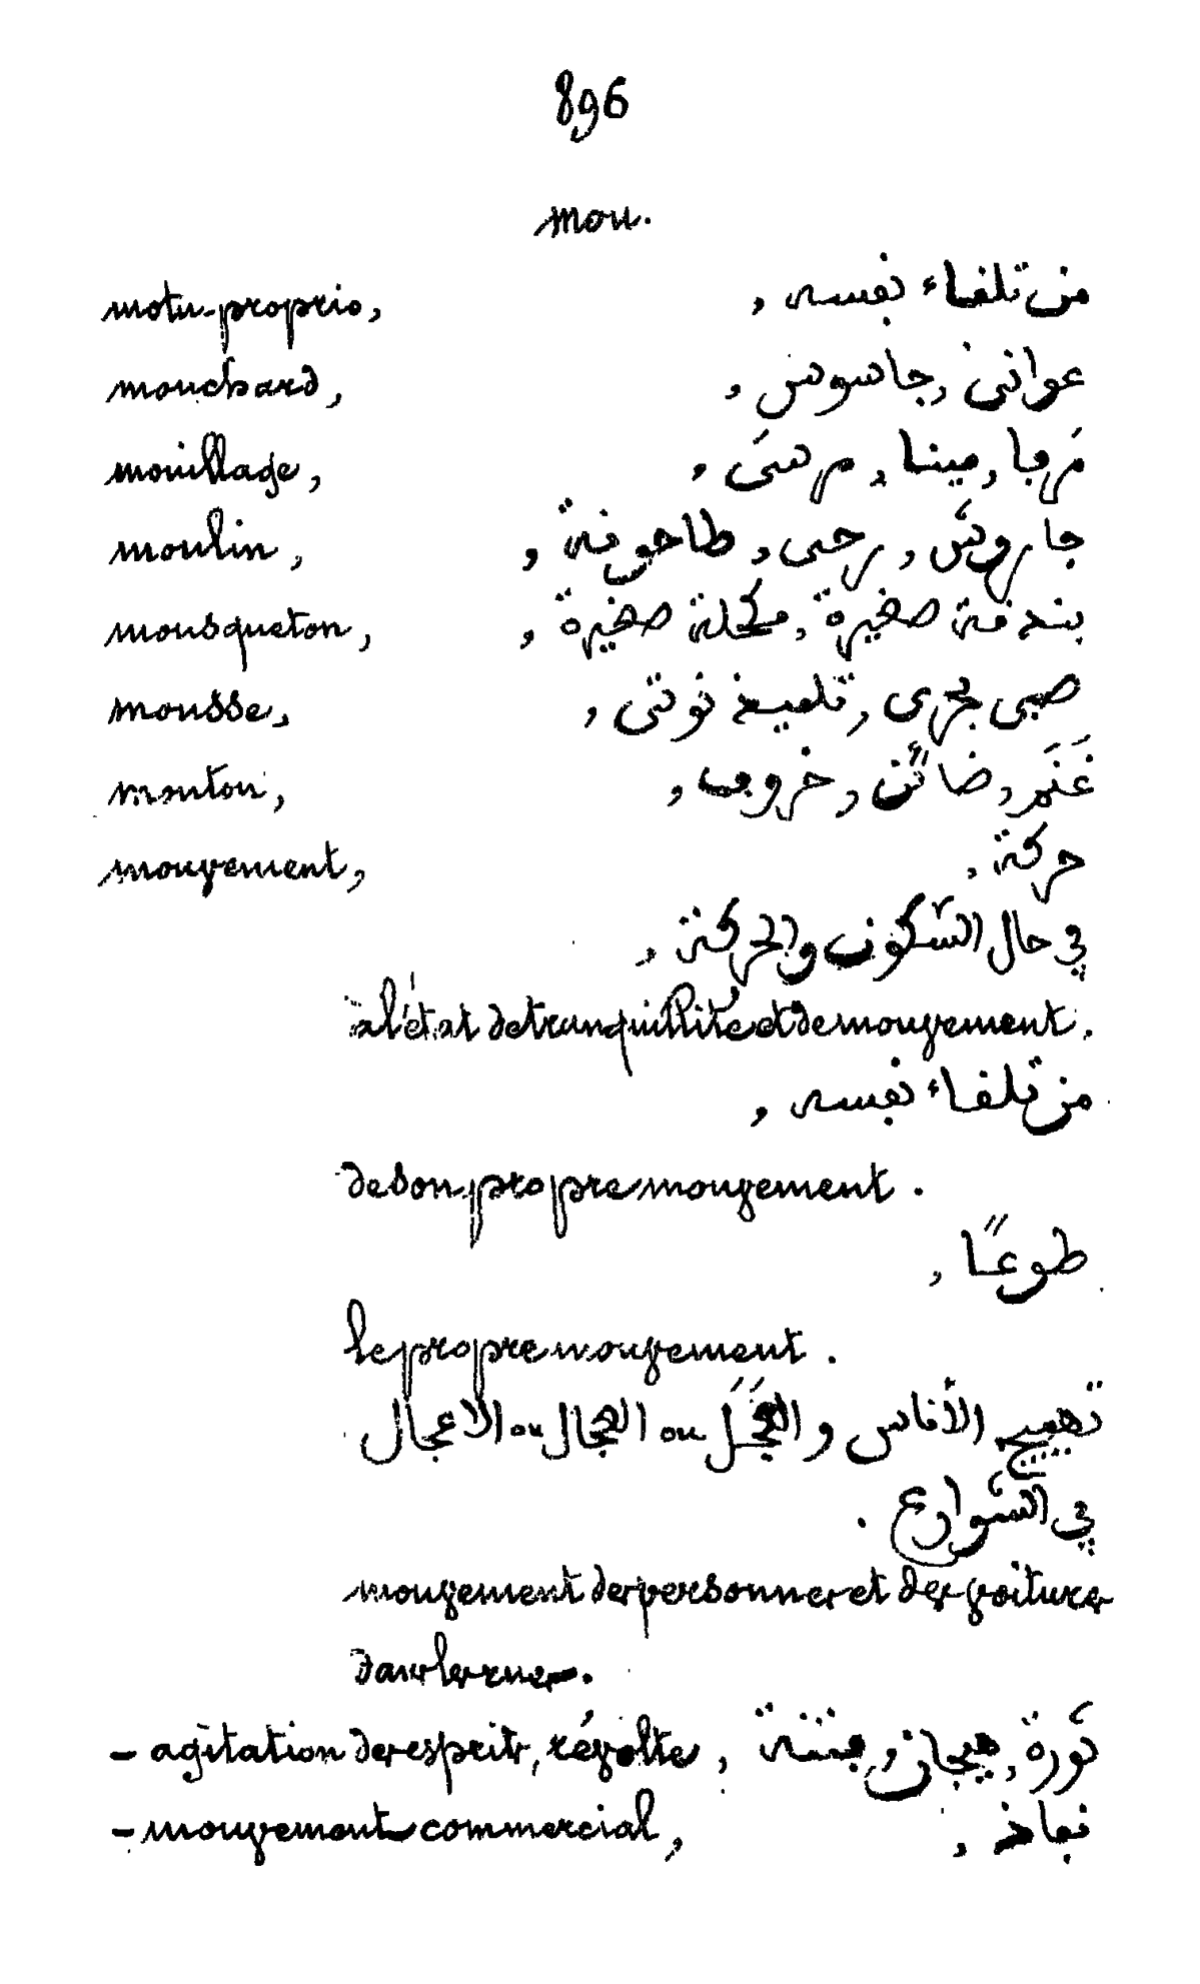 896
mou.
motu-proprio, من تلقاء نفسه ,
mouchard, عوانى , جاسوس ,
mouillage, مَرفا , مينا , مرسَى ,
moulin, جاروش , رحى , طاحونة ,
mousqueton, بندقة صغيرة , مكحلة صغيرة ,
mousse, صبى بحرى , تلميذ نوتى ,
mouton, غَنَم , ضائن , خروف ,
mouvement, حركة ,
في حال السّكون والحركة ,
à l'état de tranquillité et de mouvement.
من تلقاء نفسه ,
de son propre mouvement.
طوعًا ,
le propre mouvement.
تهييج الأناس و العَجَل ou العجال ou الأعجال
في الشّوارع .
mouvement des personnes et des voitures
dans les rues.
- agitation des esprits, révolte, ثورة , هيجان وفتنة
- mouvement commercial, نفاذ ,